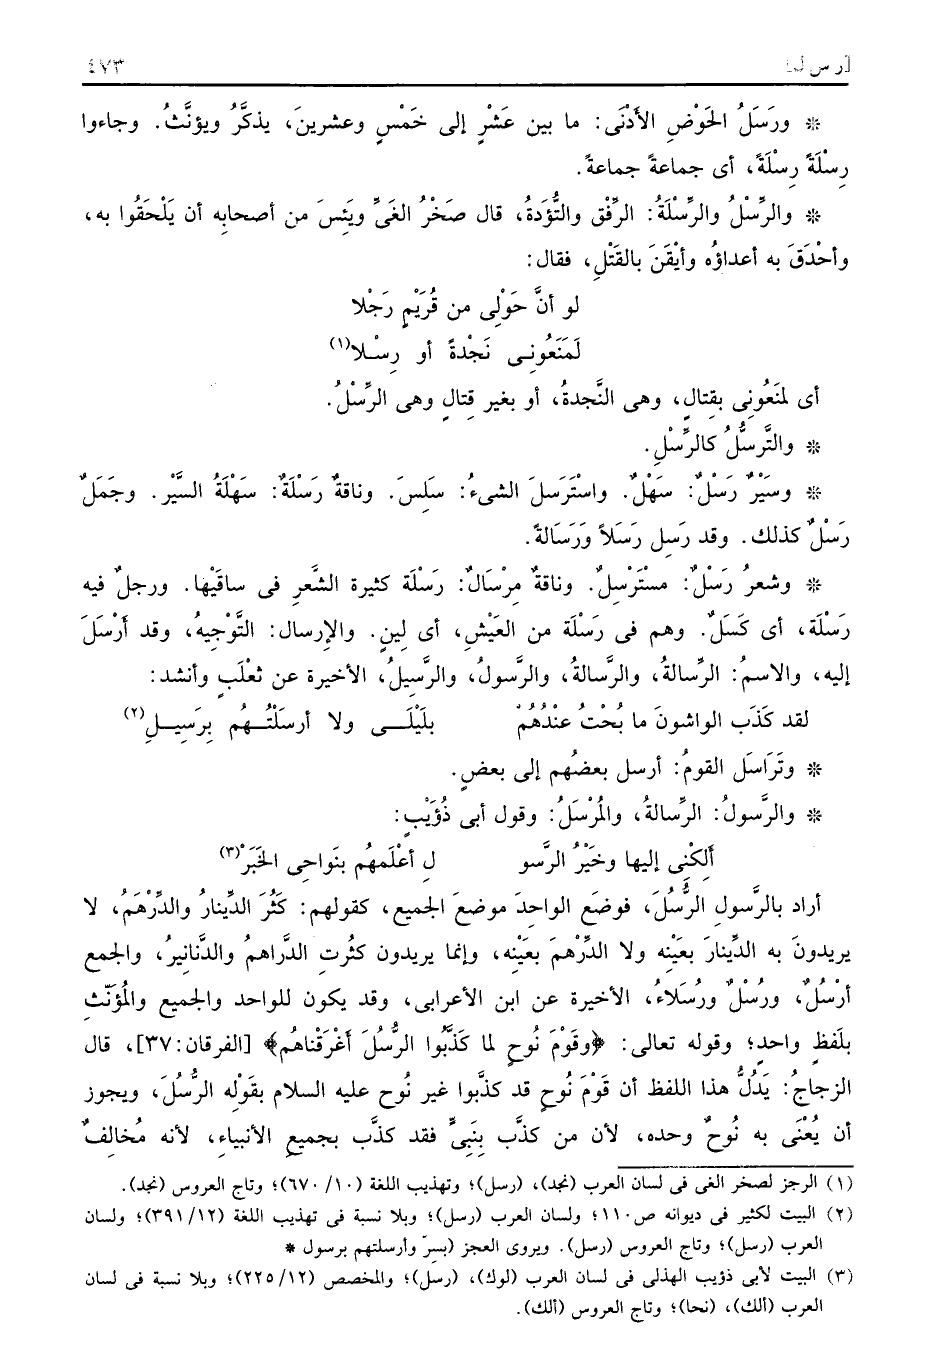 [ر س ل] ٤٧٣
* ورَسَلُ الحَوْضِ الأَدْنَى: ما بين عَشْرٍ إلى خَمْسٍ وعشرينَ، يذكَّرُ ويؤنَّثُ. وجاءوا
رِسْلَةً رِسْلَةً، أى جماعةً جماعةً.
* والرِّسْلُ والرِّسْلَةُ: الرِّفْق والتُّؤَدةُ، قال صَخْرُ الغَىِّ ويَئِسَ من أصحابِه أن يَلْحَقُوا به،
وأحْدَقَ به أعداؤُه وأيْقَنَ بالقَتْلِ، فقال:
لو أنَّ حَوْلِى من قُرَيْمٍ رَجْلا
لَمَنَعُونِى نَجْدةً أو رِسْلا(١)
أى لمنَعُونِى بقتالٍ، وهى النَّجدةُ، أو بغير قِتالٍ وهى الرِّسْلُ.
* والتَّرسُّلُ كالرِّسْلِ.
* وسَيْرٌ رَسْلٌ: سَهْلٌ. واستَرسَلَ الشىءُ: سَلِسَ. وناقةٌ رَسْلَةٌ: سَهْلَةُ السَّيْرِ. وجَمَلٌ
رَسْلٌ كذلك. وقد رَسِل رَسَلاً ورَسَالةً.
* وشعرُ رَسْلٌ: مسترْسِلٌ. وناقةٌ مِرْسَالٌ: رَسْلَة كثيرة الشَّعرِ فى ساقَيْها. ورجلٌ فيه
رَسْلَة، أى كَسَلٌ. وهم فى رَسْلَة من العَيْشِ، أى لينٍ. والإرسال: التَّوْجِيهُ، وقد أرْسَلَ
إليه، والاسمُ: الرِّسالةُ، والرَّسالةُ، والرَّسولُ، والرَّسِيلُ، الأخيرة عن ثعْلَبٍ وأنشد:
لقد كَذَب الواشونَ ما بُحْتُ عنْدُهُمْ بلَيْلَــى ولا أرسَلْتُــهُم بِرَسِيــلِ(٢)
* وتَرَاسَل القومُ: أرسل بعضُهم إلى بعضٍ.
* والرَّسولُ: الرِّسالةُ، والمُرْسَلُ: وقول أبى ذُؤَيْبٍ:
أَلِكْنِى إليها وخَيْرُ الرَّسو لِ أعْلَمهُم بنَواحِى الخَبَرْ(٣)
أراد بالرَّسولِ الرُّسُلَ، فوضَع الواحدَ موضعَ الجميع، كقولهم: كَثُرَ الدِّينارُ والدِّرْهَمُ، لا
يريدونَ به الدِّينارَ بعَيْنِه ولا الدِّرْهمَ بعَيْنِه، وإنما يريدون كثُرتِ الدَّراهمُ والدَّنانيرُ، والجمع
أرْسُلٌ، ورُسُلٌ ورُسَلاءُ، الأخيرة عن ابن الأعرابى، وقد يكون للواحد والجميع والمُؤَنَّث
بلَفظٍ واحدٍ؛ وقوله تعالى: ﴿وقَوْمَ نُوحٍ لما كَذَّبُوا الرُّسُلَ أَغْرَقْناهُم﴾ [الفرقان:٣٧]، قال
الزجاجُ: يَدُلُّ هذا اللفظ أن قَوْمَ نُوحٍ قد كذَّبوا غير نُوح عليه السلام بقَوْلِه الرُّسُلَ، ويجوز
أن يُعْنَى به نُوحٌ وحده، لأن من كذَّب بِنَبىٍّ فقد كذَّب بجميعِ الأنبياءِ، لأنه مُخالفٌ
(١) الرجز لصخر الغى فى لسان العرب (نجد)، (رسل)؛ وتهذيب اللغة (١٠/ ٦٧٠)؛ وتاج العروس (نجد).
(٢) البيت لكثير فى ديوانه ص١١٠؛ ولسان العرب (رسل)؛ وبلا نسبة فى تهذيب اللغة (١٢/ ٣٩١)؛ ولسان
العرب (رسل)؛ وتاج العروس (رسل). ويروى العجز (بسرّ وأرسلتهم برسول *
(٣) البيت لأبى ذؤيب الهذلى فى لسان العرب (لوك)، (رسل)؛ والمخصص (١٢/ ٢٢٥)؛ وبلا نسبة فى لسان
العرب (ألك)، (نحا)؛ وتاج العروس (ألك).